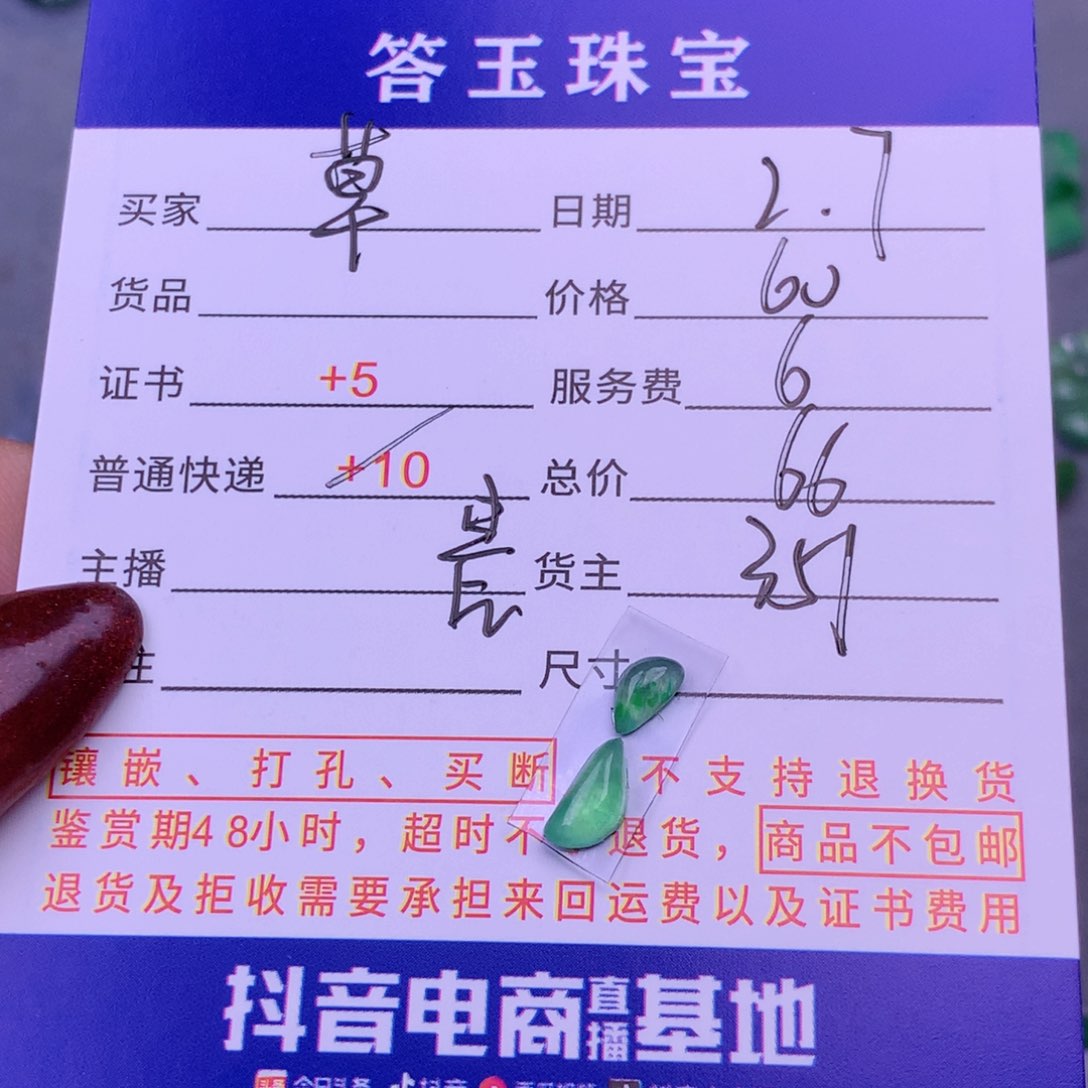 答玉珠宝
买家 草 日期 2.7
货品 价格 60
证书 +5 服务费 6
普通快递 +10 总价 66
主播 货主
注 尺寸
镶嵌、打孔、买断 不支持退换货
鉴赏期48小时，超时不 退货，商品不包邮
退货及拒收需要承担来回运费以及证书费用
抖音电商直播基地
今日头条 抖音